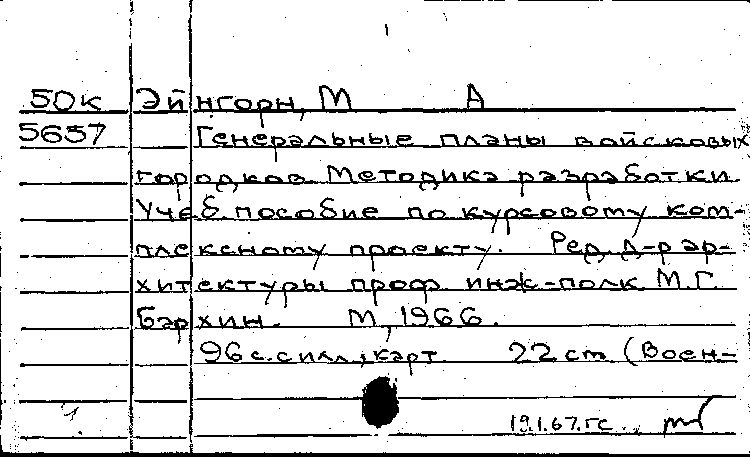 50к Эйнгорн, М А
5657 Генеральные планы войсковых
городков Методика разработки.
Учеб. пособие по курсовому ком-
плексному проекту. Ред. д-р ар-
хитектуры проф. инж-полк М.Г.
Бархин. М, 1966.
96 с. с илл, карт 22 cm (Воен-
19.1.67.гс.